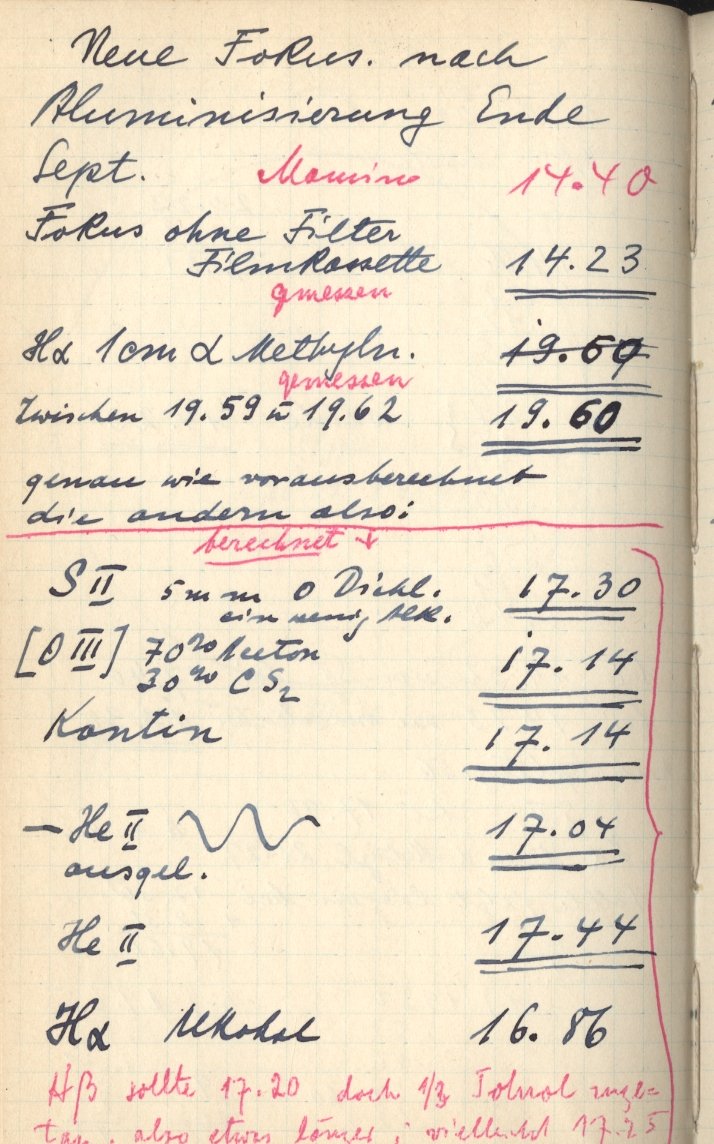 Neue Fokus. nach
Aluminisierung Ende
Sept. 14.40
Fokus ohne Filter
Filmkassette 14.23
gmessen
Hα 1cm α Methyln. 19.60
gemessen
Zwischen 19.59 u 19.62 19.60
genau wie vorausberechnet
die andern also:
berechnet ↓
S II 5mm O Dichl. 17.30
ein wenig Alk.
[O III] 70% Aceton 17.14
30% CS₂
Kontin 17.14
— He II 17.04
ausgel.
He II 17.44
Hα Alkohol 16.86
Hβ sollte 17.20 doch 1/3
also etwas länger; vielleicht 17.25